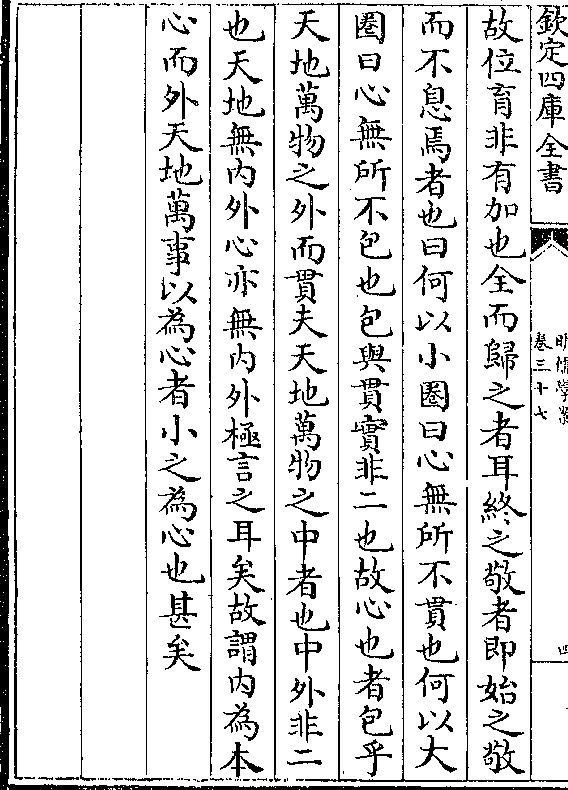 欽定四庫全書
明儒學案
卷三十七
四
故位育非有加也全而歸之者耳終之敬者即始之敬
而不息焉者也曰何以小圈曰心無所不貫也何以大
圈曰心無所不包也包與貫實非二也故心也者包乎
天地萬物之外而貫夫天地萬物之中者也中外非二
也天地無内外心亦無内外極言之耳矣故謂内為本
心而外天地萬事以為心者小之為心也甚矣